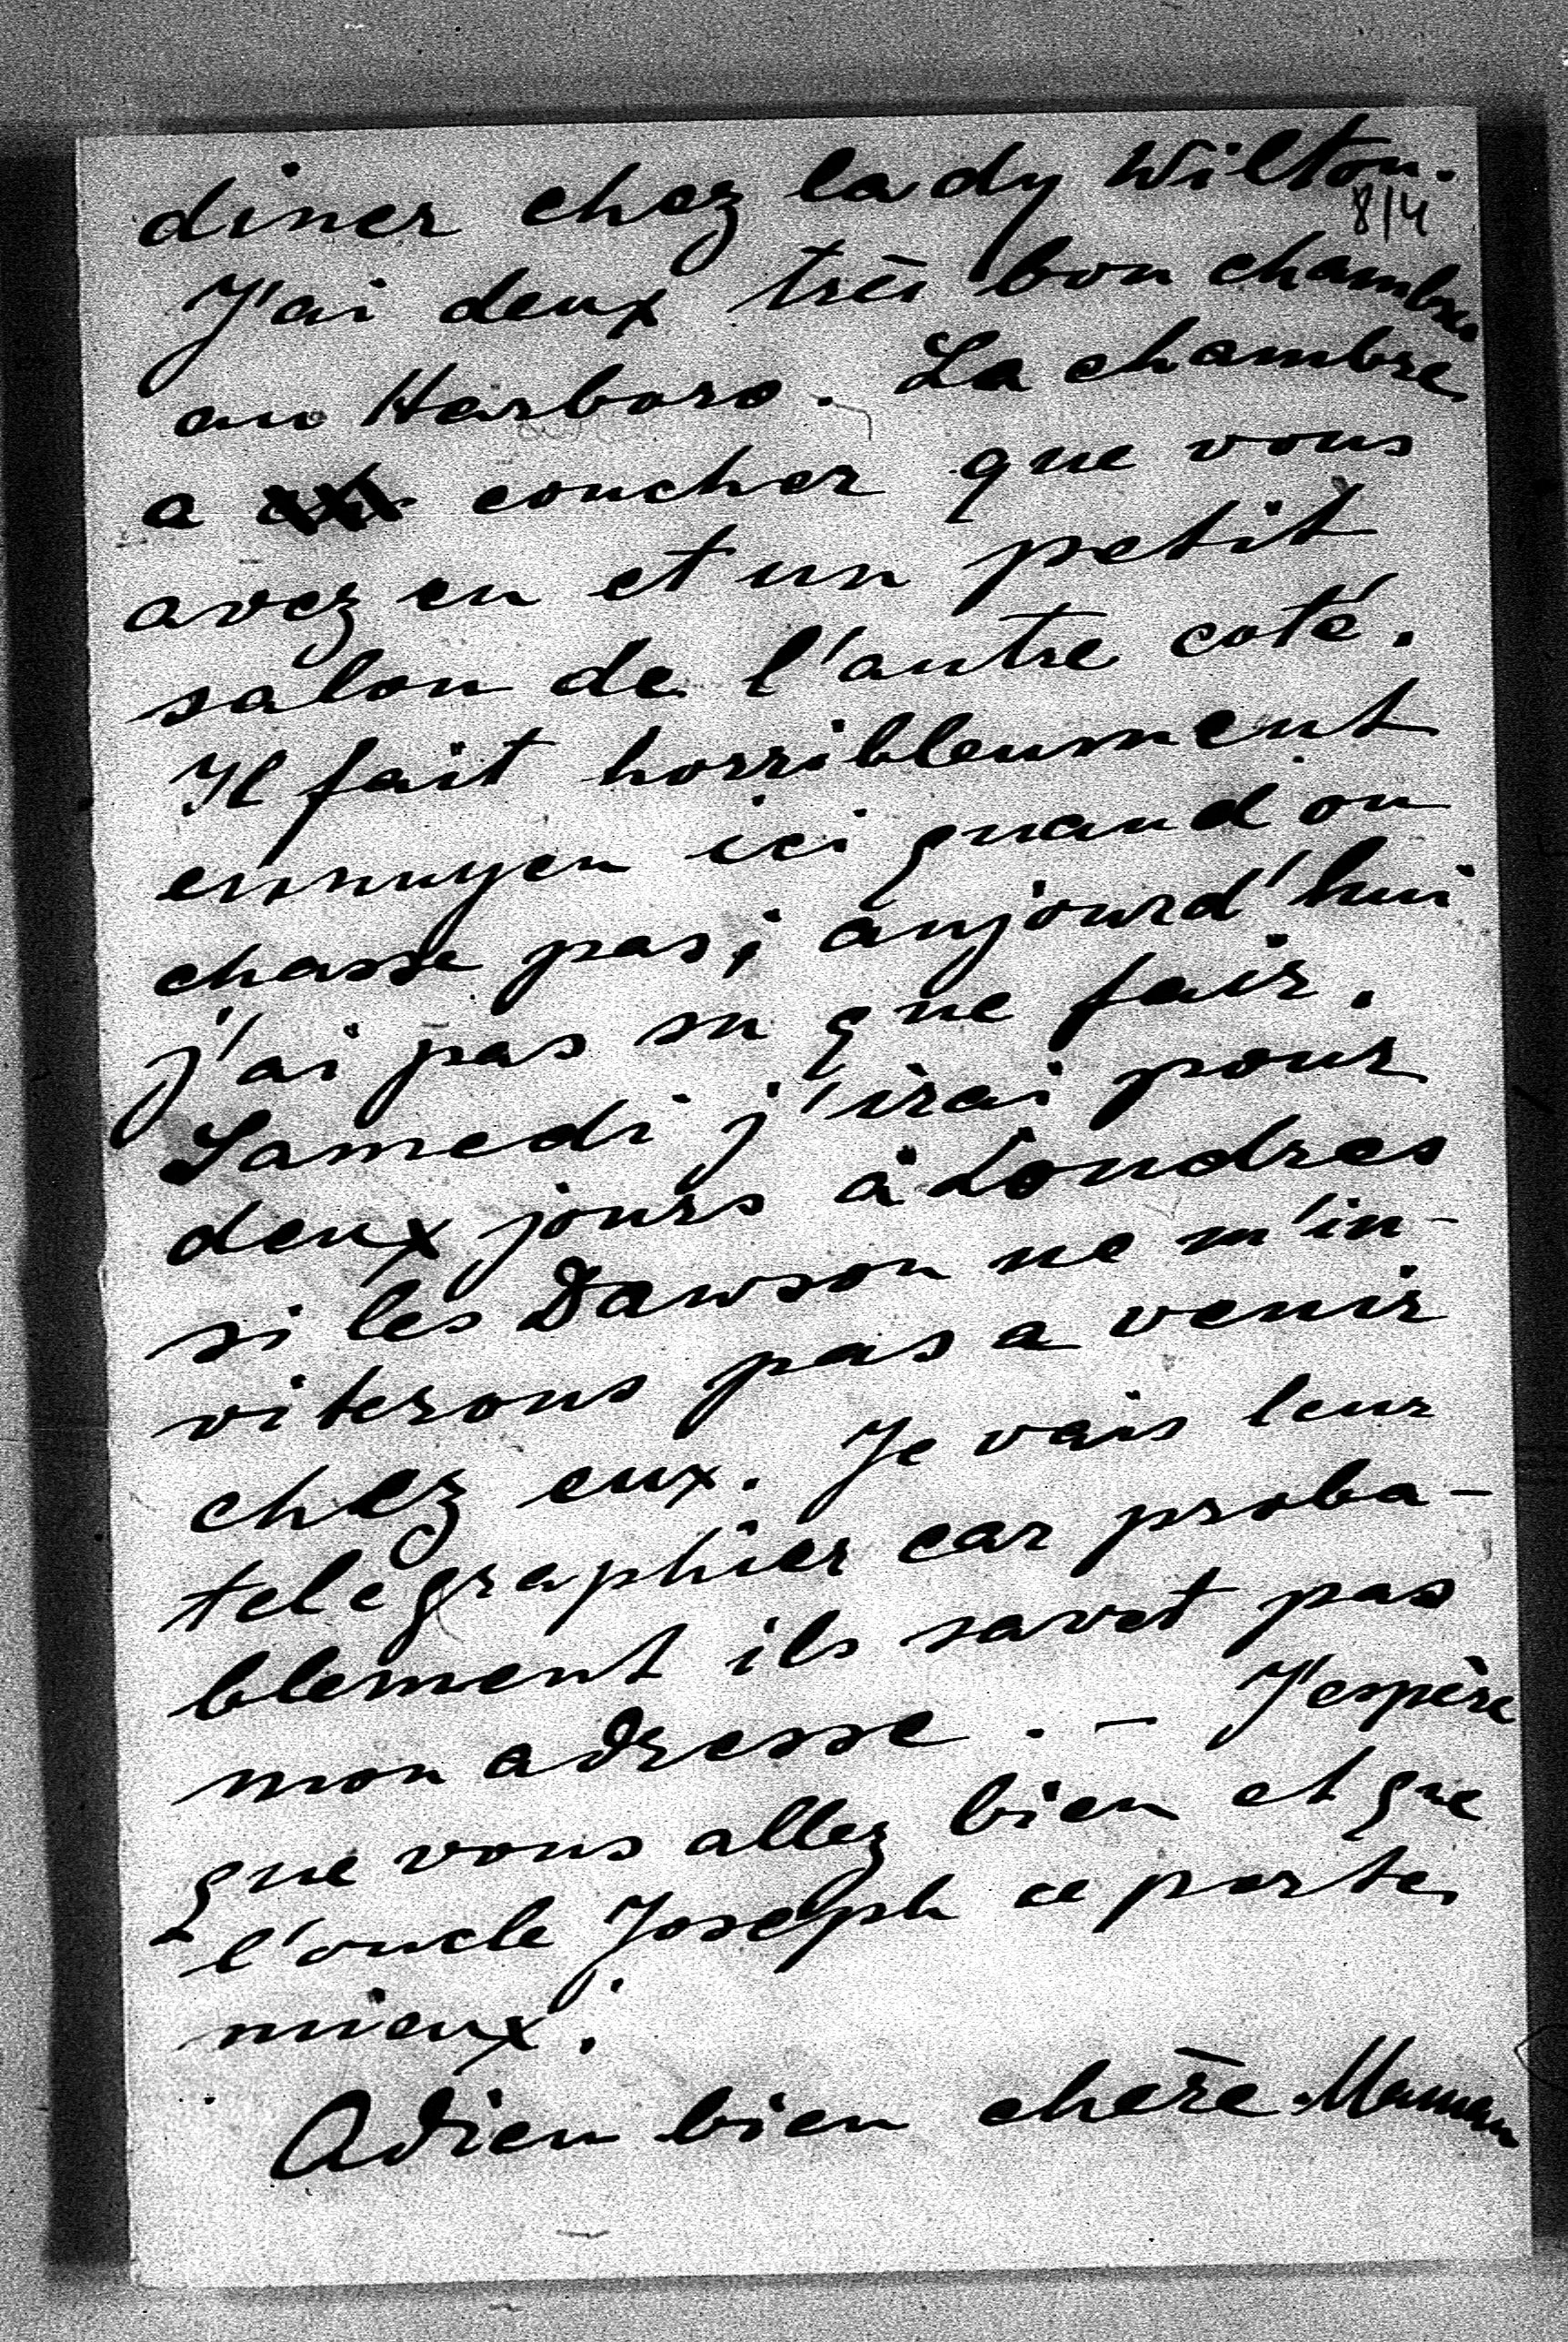 diner chez lady Wilton.
8/4
J'ai deux très bon chambres
au Harboro. La chambre
a coucher que vous
avez eu et un petit
salon de l'autre coté.
Il fait horribleument
ennuyeu ici quand on
chasse pas; aujourd'hui
j'ai pas su que fair.
Samedi j'irai pour
deux jours à Londres
si les Dawson ne m'in-
viterons pas a venir
chez eux. Je vais leur
telégraphier car proba-
blement ils savet pas
mon adresse. — J'espère
que vous allez bien et que
l'oncle Joseph ce porte
mieux.
Adieu bien chère Maman